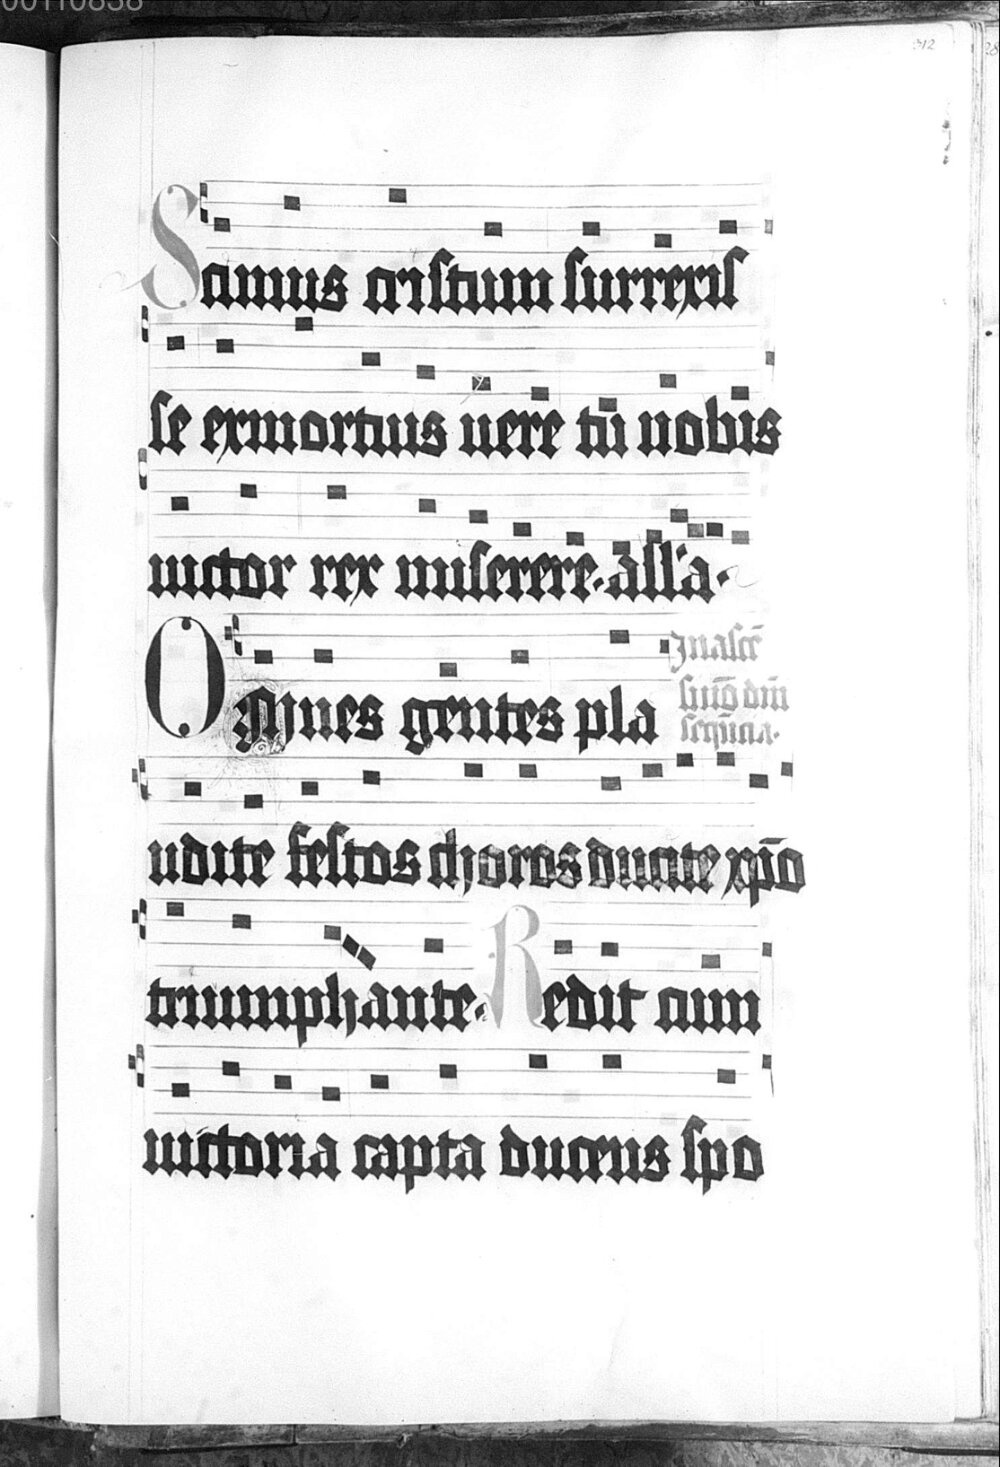 00110838
312
Scimus cristum surrexis
se exmortuis vere tū nobis
victor rex miserere. all'a.
Omnes gentes pla
In ascē
siōo dn̄i
sequīcia.
udite festos choros ducite xp̄o
triumphante. Redit cum
victoria capta ducens spo